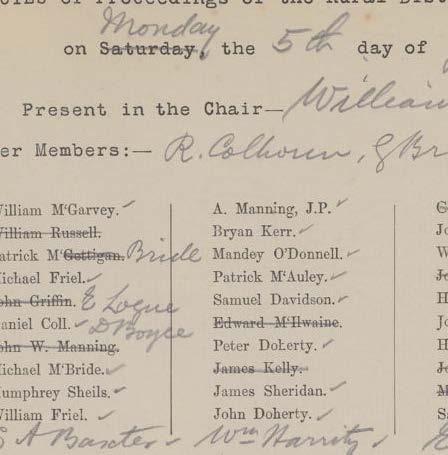 of Proceedings of the Rural
Monday
on Saturday, the 5th day of
Present in the Chair— William
Members:— R. Calhoun, G Br
William McGarvey.
William Russell.
Patrick McGettigan. Bride
Michael Friel.
John Griffin. E Logue
Daniel Coll. D Boyce
John W. Manning.
Michael McBride.
Humphrey Sheils.
William Friel.
E A Baxter
A. Manning, J.P.
Bryan Kerr.
Mandey O'Donnell.
Patrick McAuley.
Samuel Davidson.
Edward McIlwaine.
Peter Doherty.
James Kelly.
James Sheridan.
John Doherty.
Wm Harrity